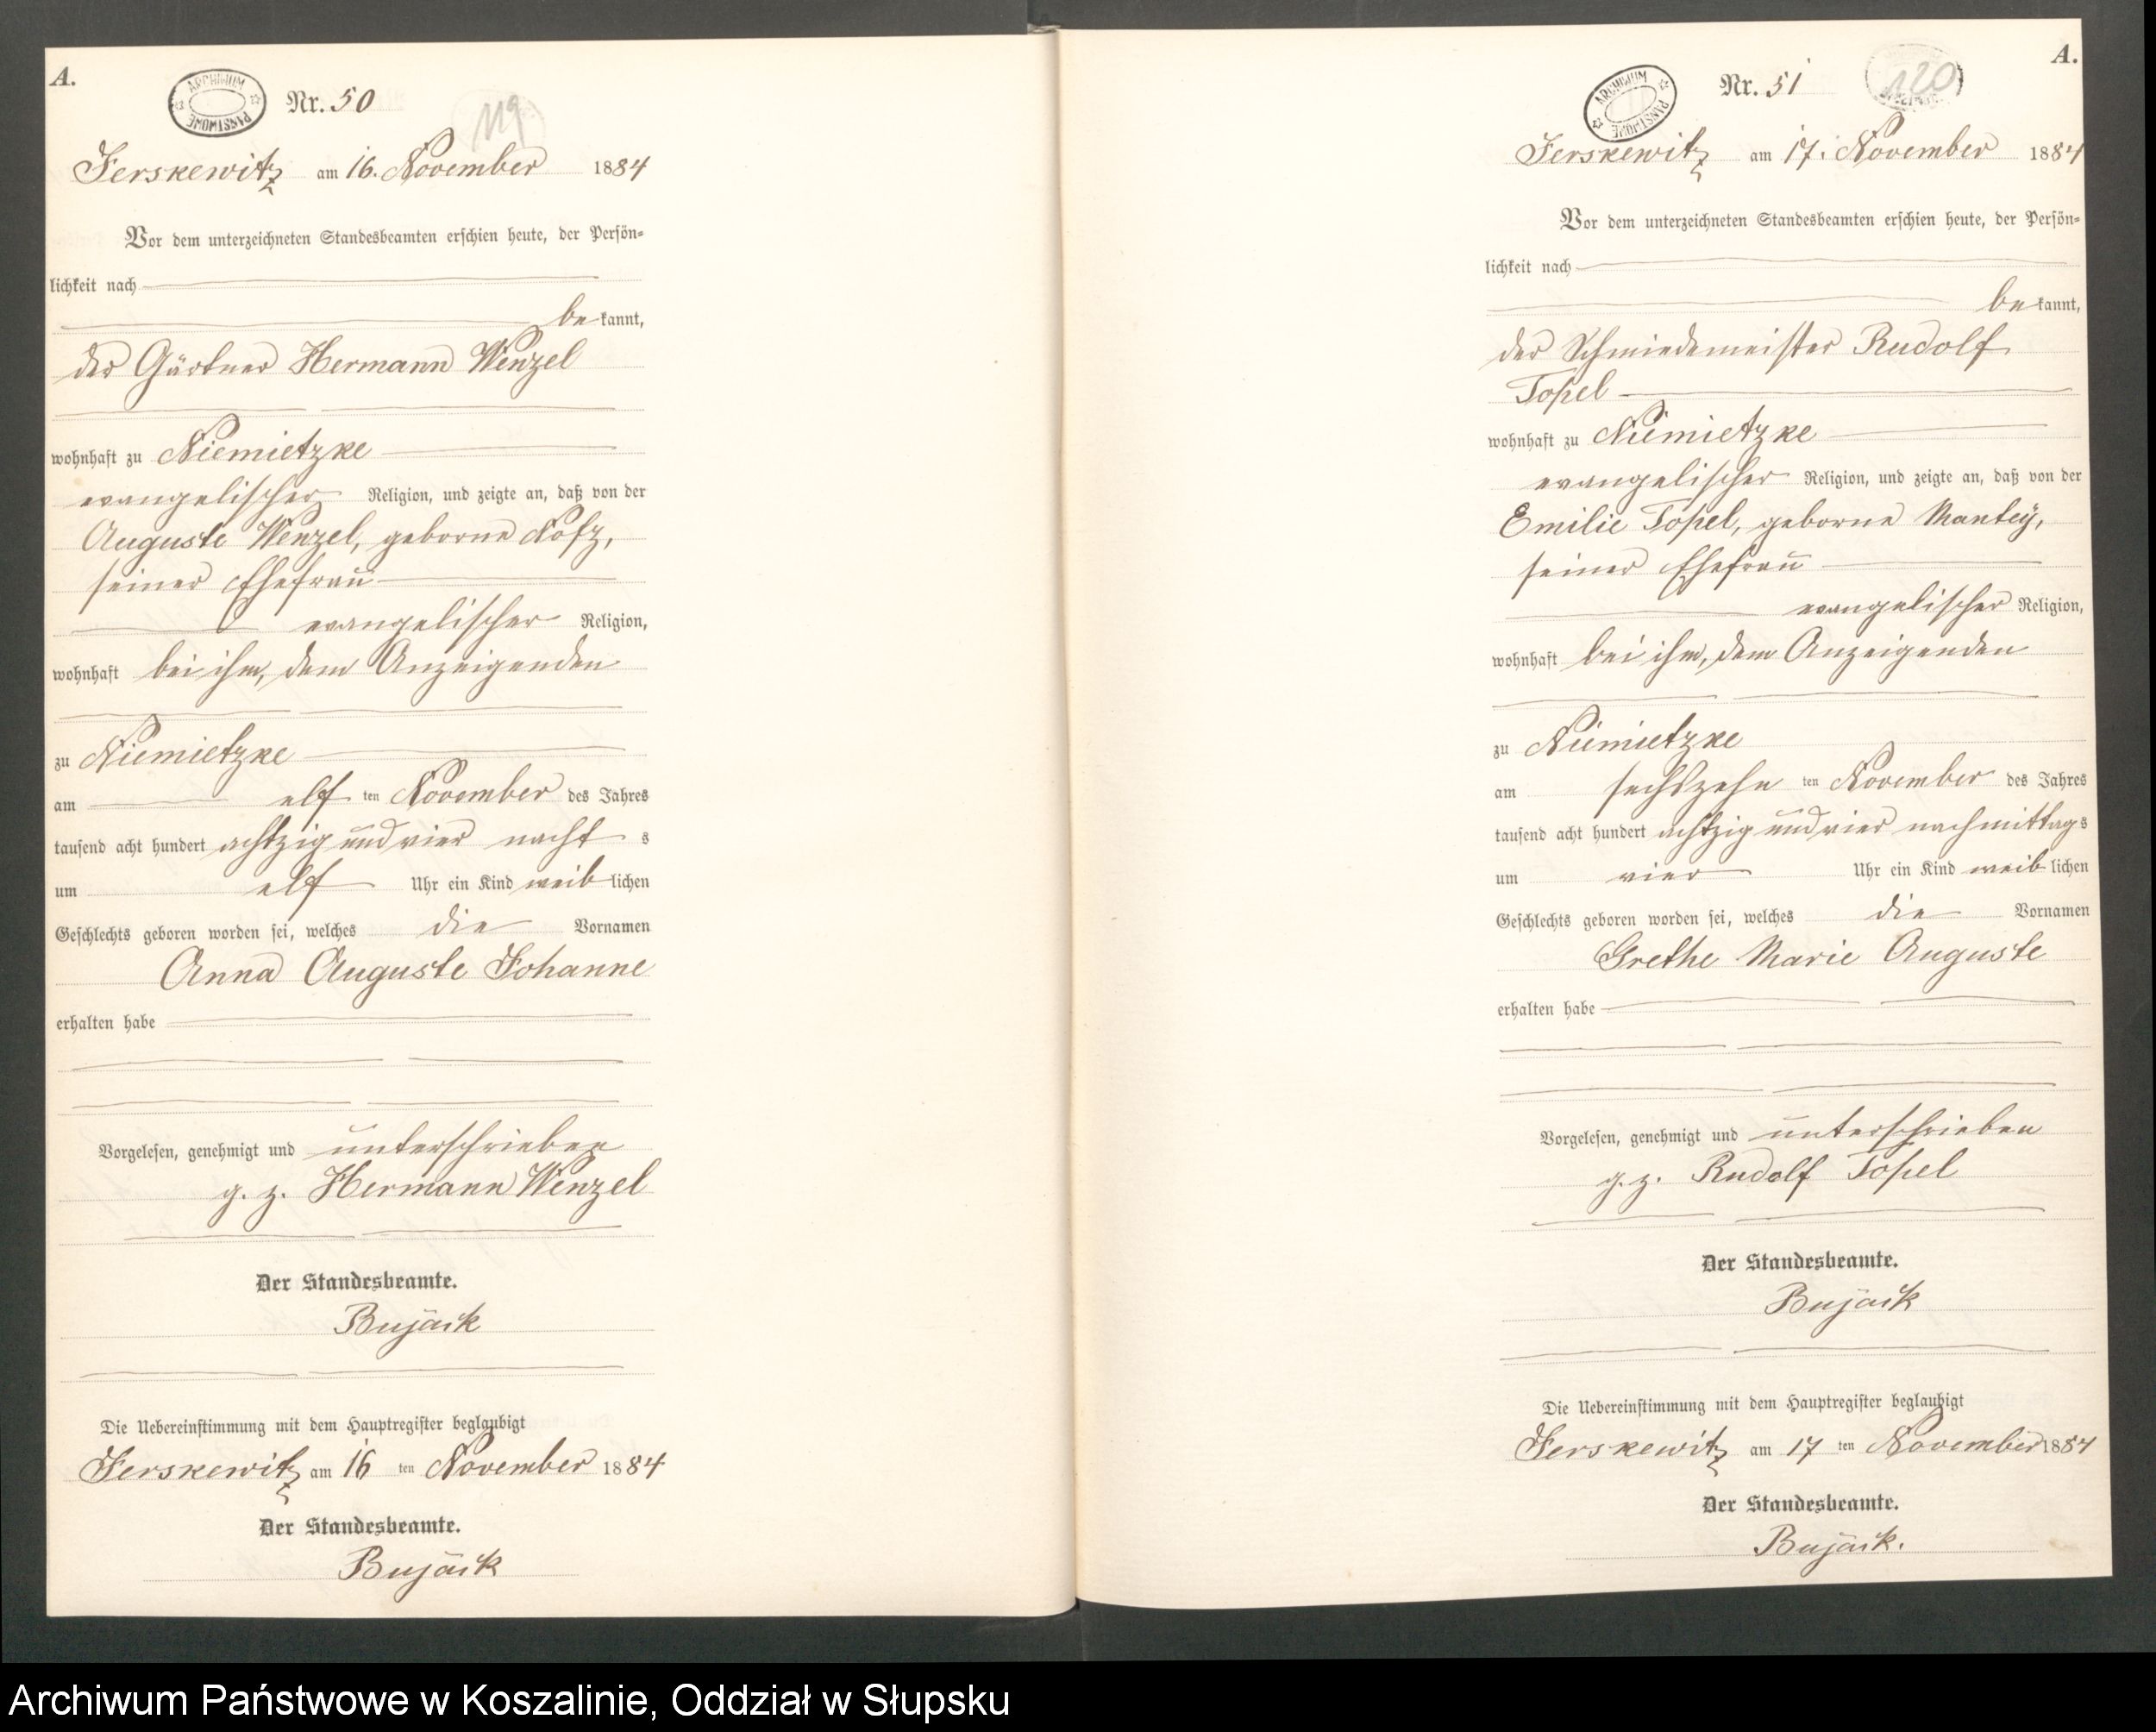 A.
ARCHIWUM PAŃSTWOWE
Nr. 50
119
Jerskewitz am 16. November 1884
Vor dem unterzeichneten Standesbeamten erschien heute, der Persön-
lichkeit nach
bekannt,
der Gärtner Hermann Wenzel
wohnhaft zu Niemietzke
evangelischer Religion, und zeigte an, daß von der
Auguste Wenzel, geborne
seiner Ehefrau
evangelischer Religion,
wohnhaft bei ihm, dem Anzeigenden
zu Niemietzke
am elf ten November des Jahres
tausend acht hundert achtzig und vier nacht s
um elf Uhr ein Kind weiblichen
Geschlechts geboren worden sei, welches die Vornamen
Anna Auguste Johanne
erhalten habe
Vorgelesen, genehmigt und unterschrieben
g. z. Hermann Wenzel
Der Standesbeamte.
Bujack
Die Uebereinstimmung mit dem Hauptregister beglaubigt
Jerskewitz am 16 ten November 1884
Der Standesbeamte.
Bujack
A.
ARCHIWUM PAŃSTWOWE
Nr. 51
120
Jerskewitz am 17. November 1884
Vor dem unterzeichneten Standesbeamten erschien heute, der Persön-
lichkeit nach
bekannt,
der Schmiedemeister Rudolf
Topel
wohnhaft zu Niemietzke
evangelischer Religion, und zeigte an, daß von der
Emilie Topel, geborne Mantey,
seiner Ehefrau
evangelischer Religion,
wohnhaft bei ihm, dem Anzeigenden
zu Niemietzke
am sechszehn ten November des Jahres
tausend acht hundert achtzig und vier nachmittags
um vier Uhr ein Kind weiblichen
Geschlechts geboren worden sei, welches die Vornamen
Grethe Marie Auguste
erhalten habe
Vorgelesen, genehmigt und unterschrieben
g. z. Rudolf Topel
Der Standesbeamte.
Bujack
Die Uebereinstimmung mit dem Hauptregister beglaubigt
Jerskewitz am 17 ten November 1884
Der Standesbeamte.
Bujack.
Archiwum Państwowe w Koszalinie, Oddział w Słupsku